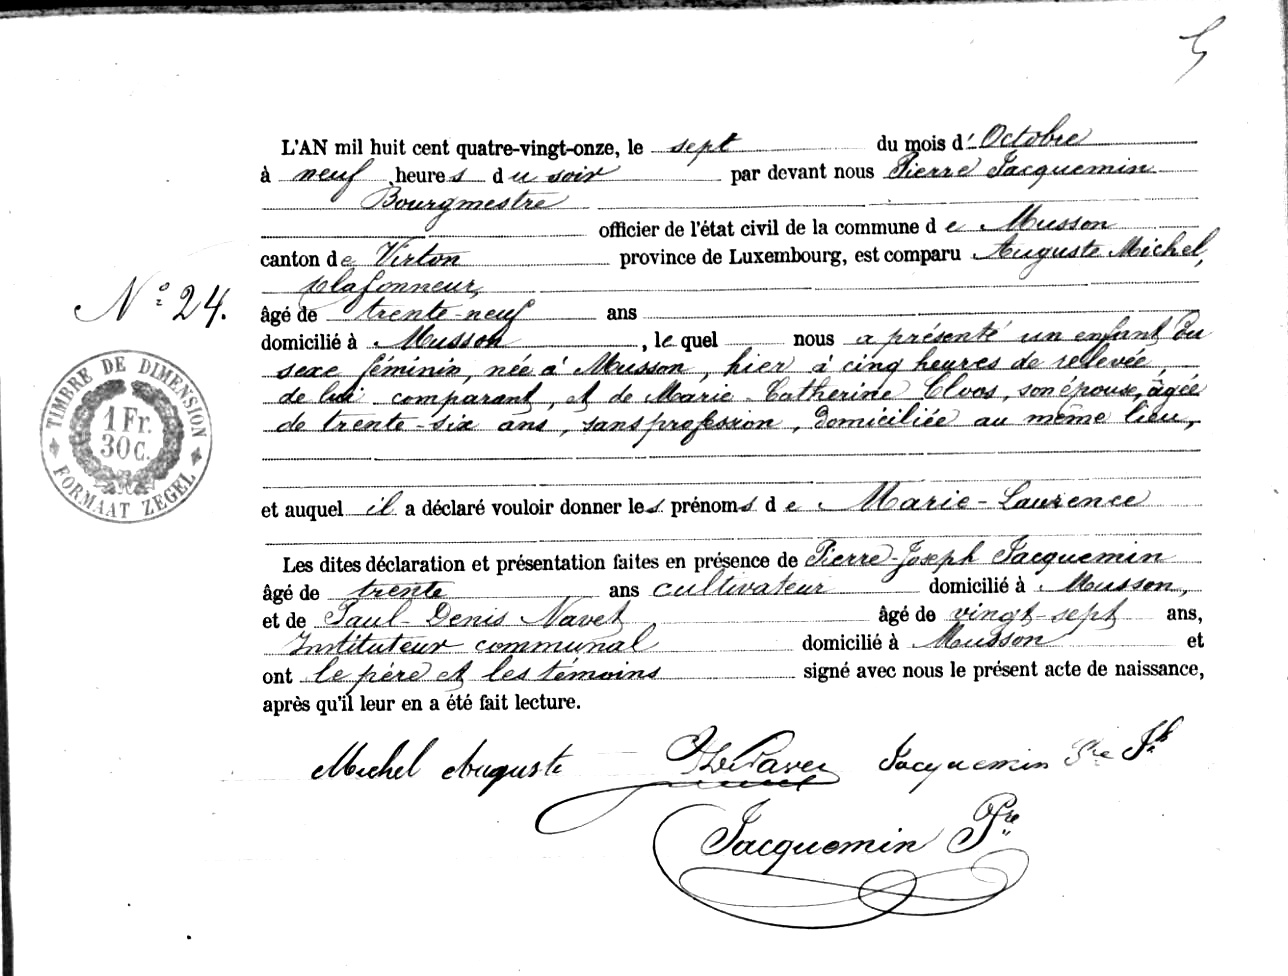 L'AN mil huit cent quatre-vingt-onze, le sept du mois d'Octobre
à neuf heures du soir par devant nous Pierre Jacquemin
Bourgmestre
officier de l'état civil de la commune de Musson
canton de Virton province de Luxembourg, est comparu Auguste Michel,
plafonneur,
N° 24.
âgé de trente-neuf ans
domicilié à Musson, le quel nous a présenté un enfant du
sexe féminin, née à Musson, hier à cinq heures de relevée,
de lui comparant, et de Marie-Catherine Cloos, son épouse, âgée
de trente-six ans, sans profession, domiciliée au même lieu,
TIMBRE DE DIMENSION
1 Fr.
30 C.
FORMAAT ZEGEL
et auquel il a déclaré vouloir donner les prénoms de Marie-Laurence
Les dites déclaration et présentation faites en présence de Pierre-Joseph Jacquemin
âgé de trente ans cultivateur domicilié à Musson,
et de Paul-Denis Navet âgé de vingt-sept ans,
Instituteur communal domicilié à Musson et
ont le père et les témoins signé avec nous le présent acte de naissance,
après qu'il leur en a été fait lecture.
Michel Auguste Navet Jacquemin Pre Jh
Jacquemin Pre